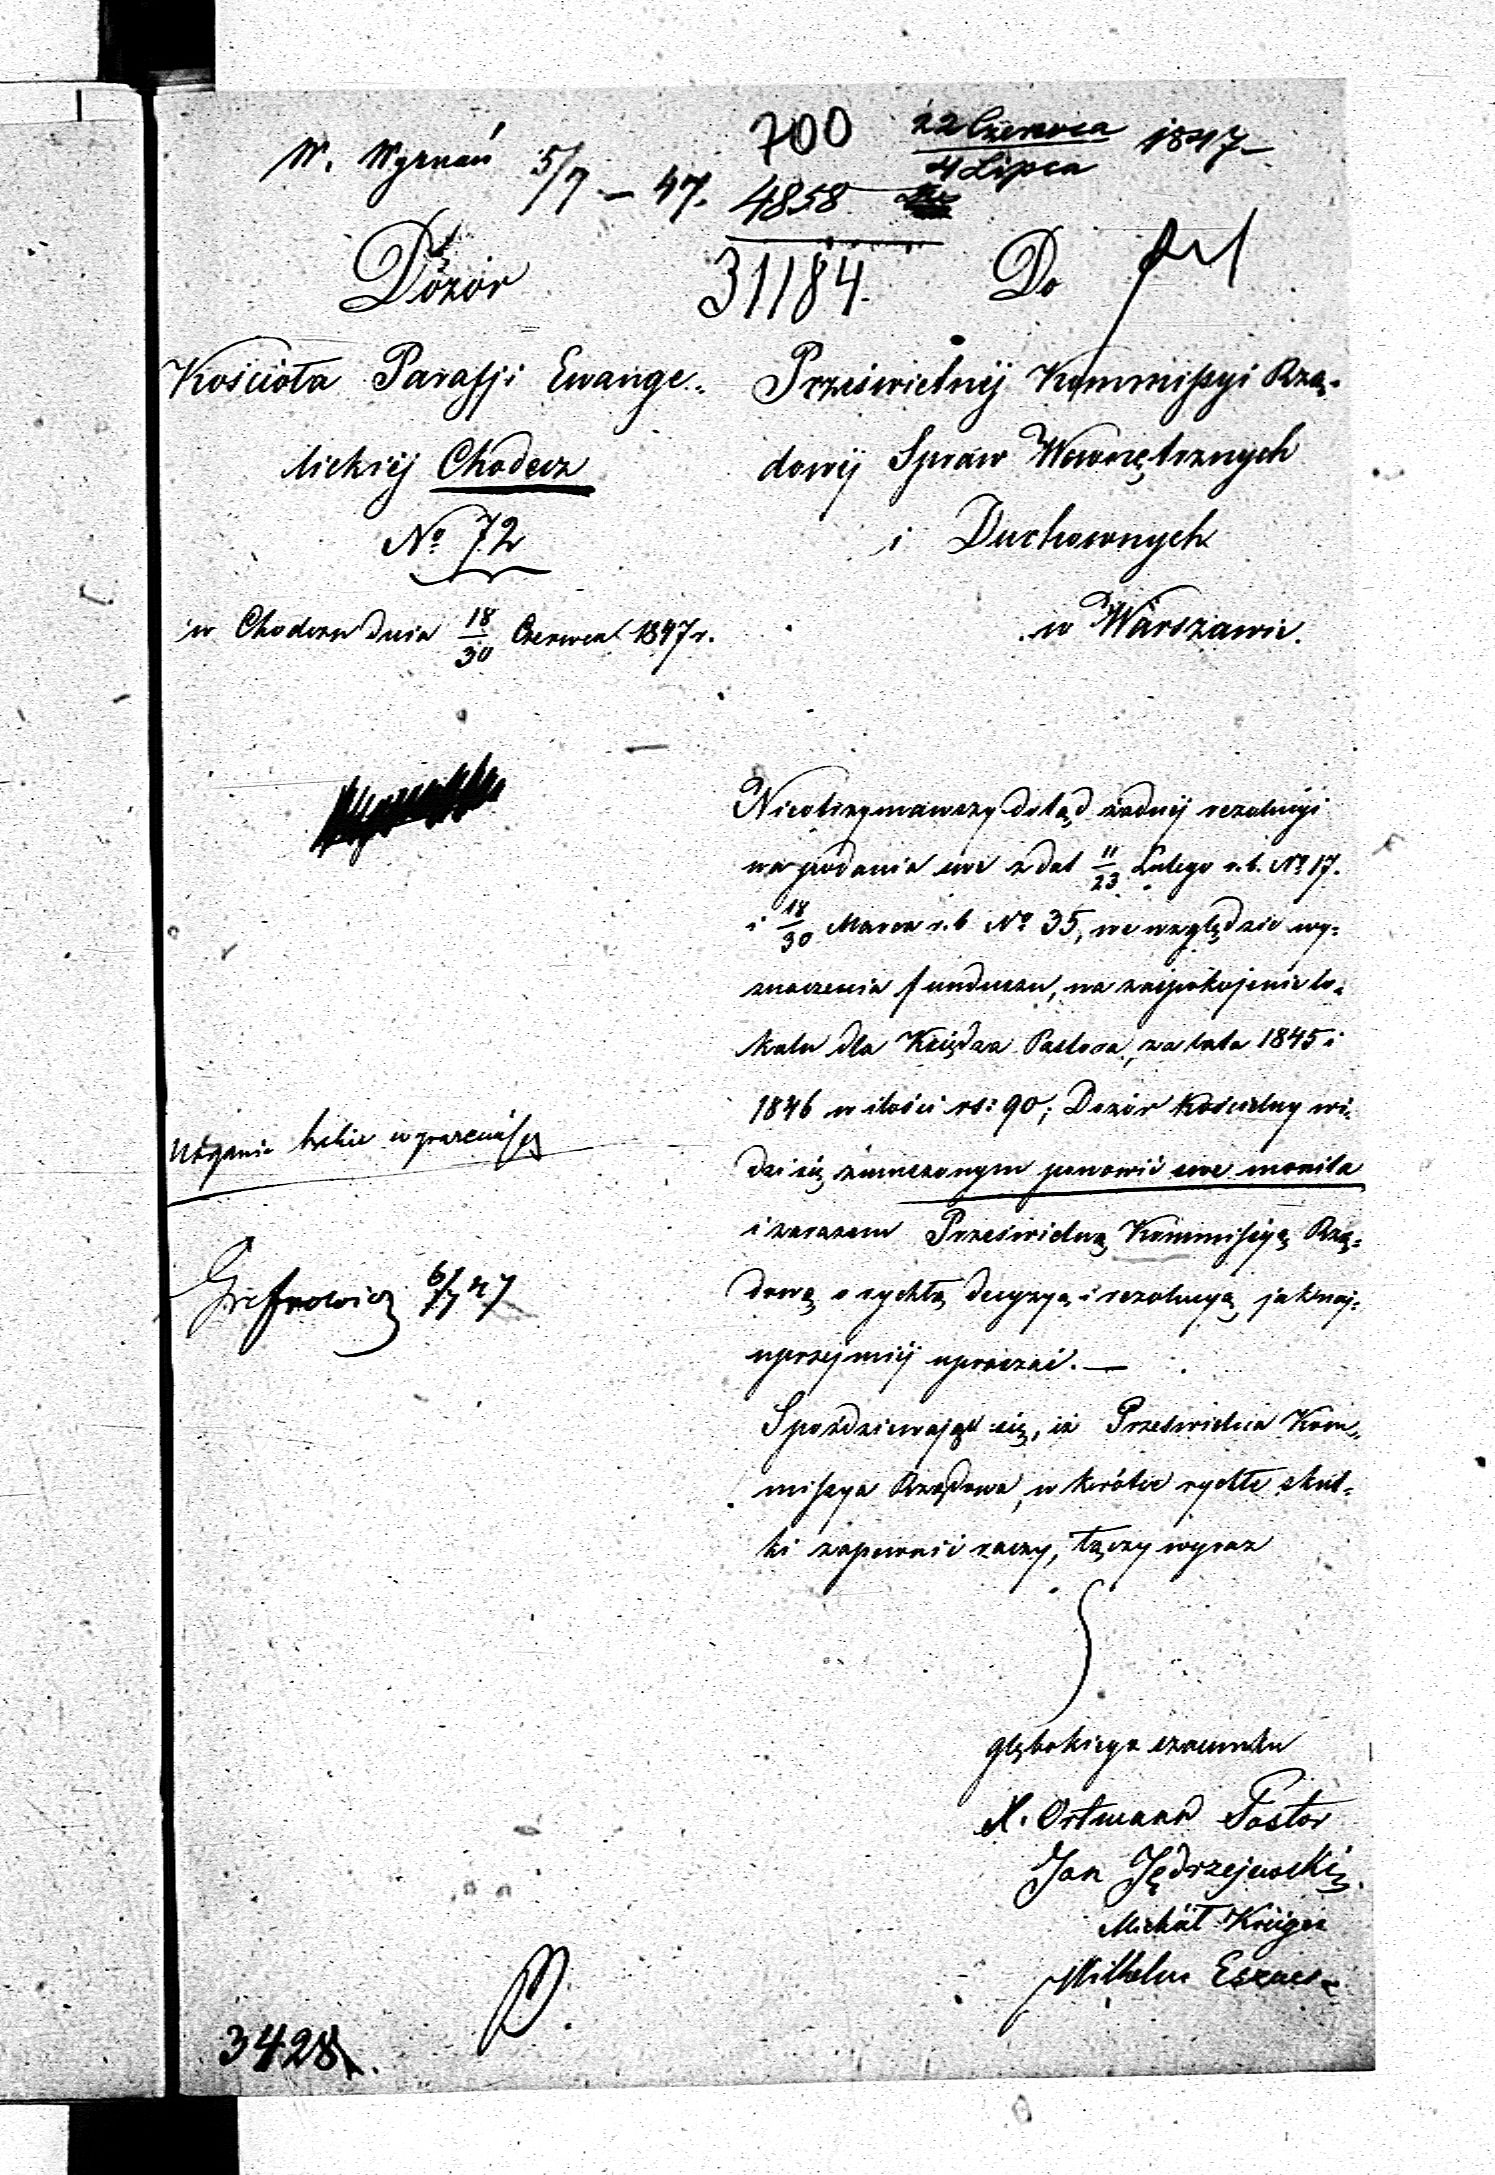 W. Wyznań 5/7 – 47.
700
22 Czerwca
4 Lipca 1847
4858
31184.
Dozór
Kościoła Parafji Ewange„
lickiéj Chodecz
No 72
w Chodczu dnia 18/30 Czerwca 1847 r.
Do
Prześwietnéj Kommissyi Rzą„
dowéj Spraw Wewnętrznych
i Duchownych
w Warszawie.
Nieotrzymawszy dotąd żadnéj rezolucyi
na podania swe z dat 11/23 Lutego r. b. No 17.
i 18/30 Marca r. b No 35, we względzie wy„
znaczenia funduszu, na zaspokojenie lo„
kalu dla Księdza Pastora, za lata 1845 i
1846 w ilości rs: 90; Dozór Kościelny wi„
dzi się zmuszonym ponowić swe monita
i zarazem Prześwietną Kommissyą Rzą„
dową o rychłą decyzyą i rezolucyą jaknaj„
uprzejmiéj upraszać. —
Spodziewając się, iż Prześwietna Kom„
missya Rządowa, w krótce rychłe skut„
ki zapewnić raczy, łączy wyraz
głębokiego szacunku
X. Ortmann Pastor
Jan Jędrzejewski
Michał Krüger
Wilhelm
6/7 47
3428